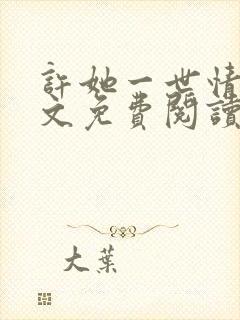 許她一世情
文免費閱讀
大葉